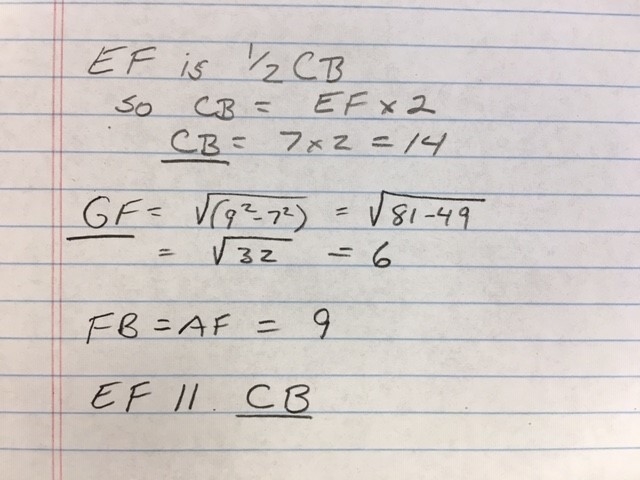 EF is 1/2 CB
so CB = EF x 2
CB = 7 x 2 = 14
GF = √(9²-7²) = √81-49
= √32 = 6
FB = AF = 9
EF //. CB